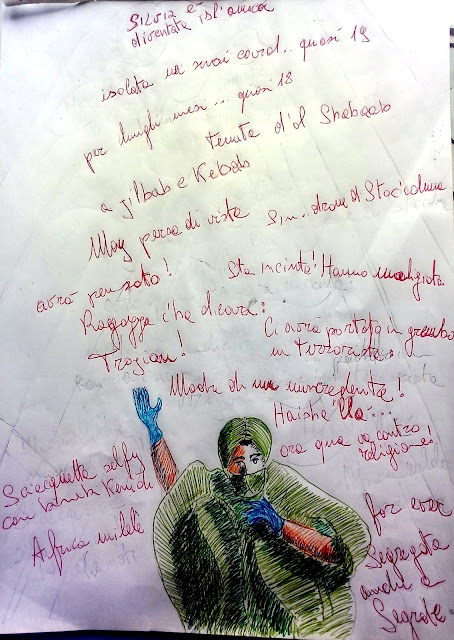 Silvia è
diventata islamica
isolata ur mai covid.. quasi 19
per lunghi mesi ... quasi 18
tenuta d'al Shabaab
a jilbab e Kebab
May persa di vista
Sin..drome di Stoc'colma
avrò pensato!
Sta incinta! Hanno mangiata
Ragazza c'he di cova:
Ci avrà portato in grembo
un terrorista.
Trojan!
Madre di un miscredente!
Haisha'lla...
ora qua va contro
religione!
Sciacquetta selfy
con vanità Kenidi
Africa milele
for ever
Segregata
anche a
Segrate